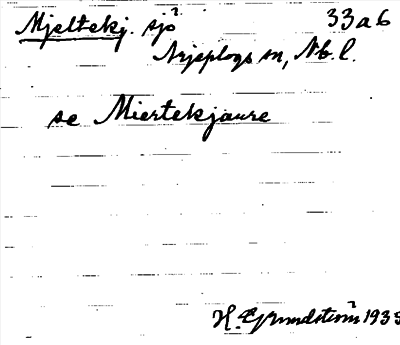 Mjeltekj. sjö 33ab
Arjeplogs sn, Nb. l.
se Miertekjaure
H. Grundström 1935